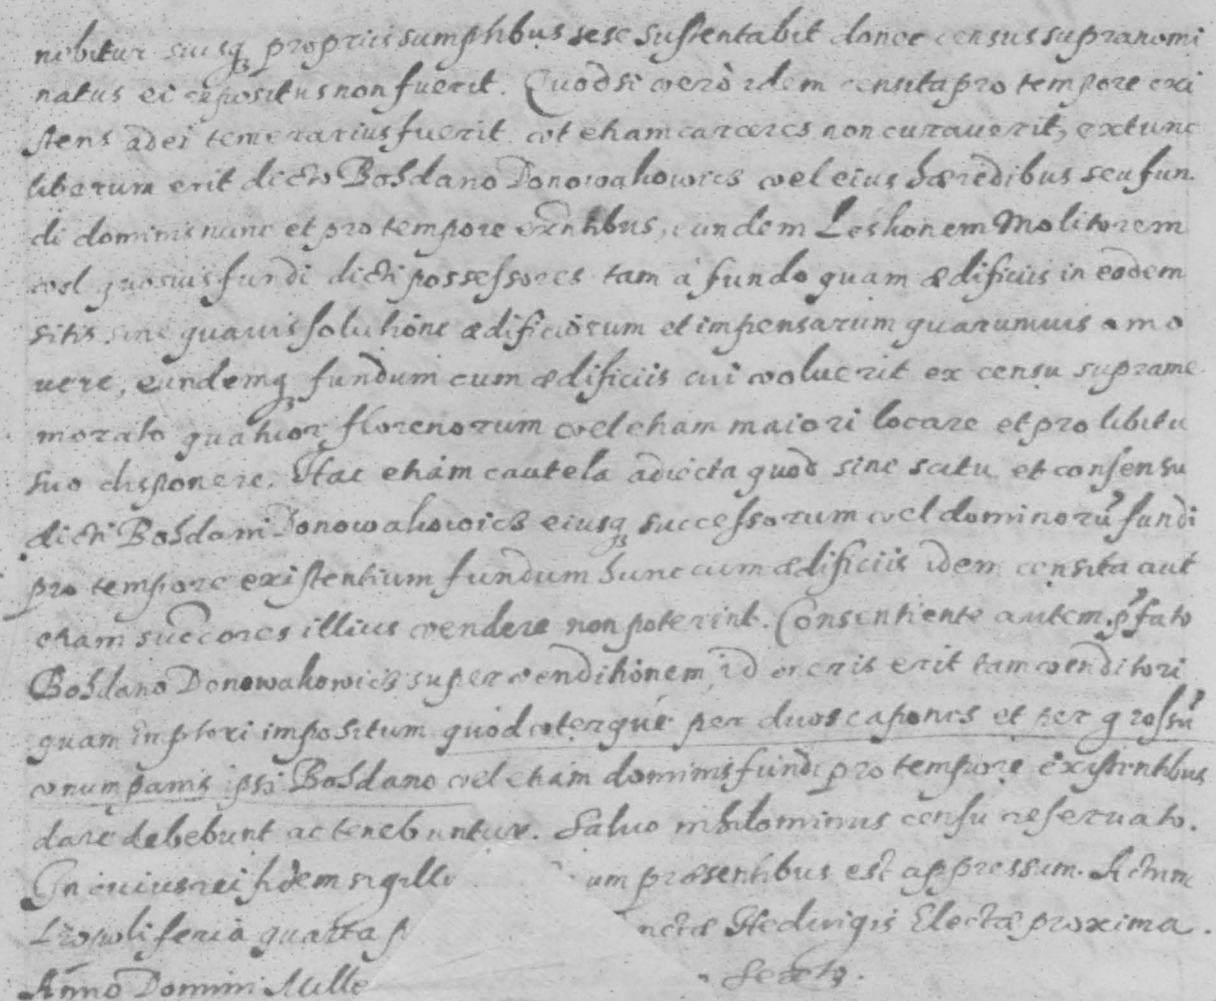 nebitur eiusq₃ proprijs sumptibus sese sustentabit donec census supranomi
natus ei repositus non fuerit. Quodsi verò idem censita pro tempore exi
stens adei temerarius fuerit vt etiam carceres non curauerit, extunc
liberum erit dicto Bohdano Donowakowicz vel eius hæredibus seu fun.
di dominis nunc et pro tempore exntibus, eundem Leskonem Molitorem
vel quosuis fundi dicti possessores tam à fundo quam ædificiis in eodem
sitis sine quauis solutione ædificiorum et impensarum quarumuis amo
uere, eundemq₃ fundum cum ædificiis cui voluerit ex censu suprame
morato quatuor florenorum vel etiam maiori locare et pro libitu
suo disponere. Hac etiam cautela adiecta quod sine scitu et consensu
dicti Bohdani Donowakowicz eiusq₃ successorum vel dominorũ fundi
pro tempore existentium fundum hunc cum ædificiis idem censita aut
etiam succores illius vendere non poterint. Consentiente autem p̃fato
Bohdano Donowakowicz super venditionem, id oneris erit tam venditori
quam emptori impositum quòd vterque per duos capones et per grossũ
vnum panis ipsi Bohdano vel etiam dominis fundi pro tempore existentibus
dare debebunt ac tenebuntur. Saluo nihilominus censu reseruato.
In cuius rei fidem sigillu um præsentibus est appressum. Actum
Leopoli feria quarta p nctæ Hedvigis Electæ proxima.
Anno Domini Mille Sexto.